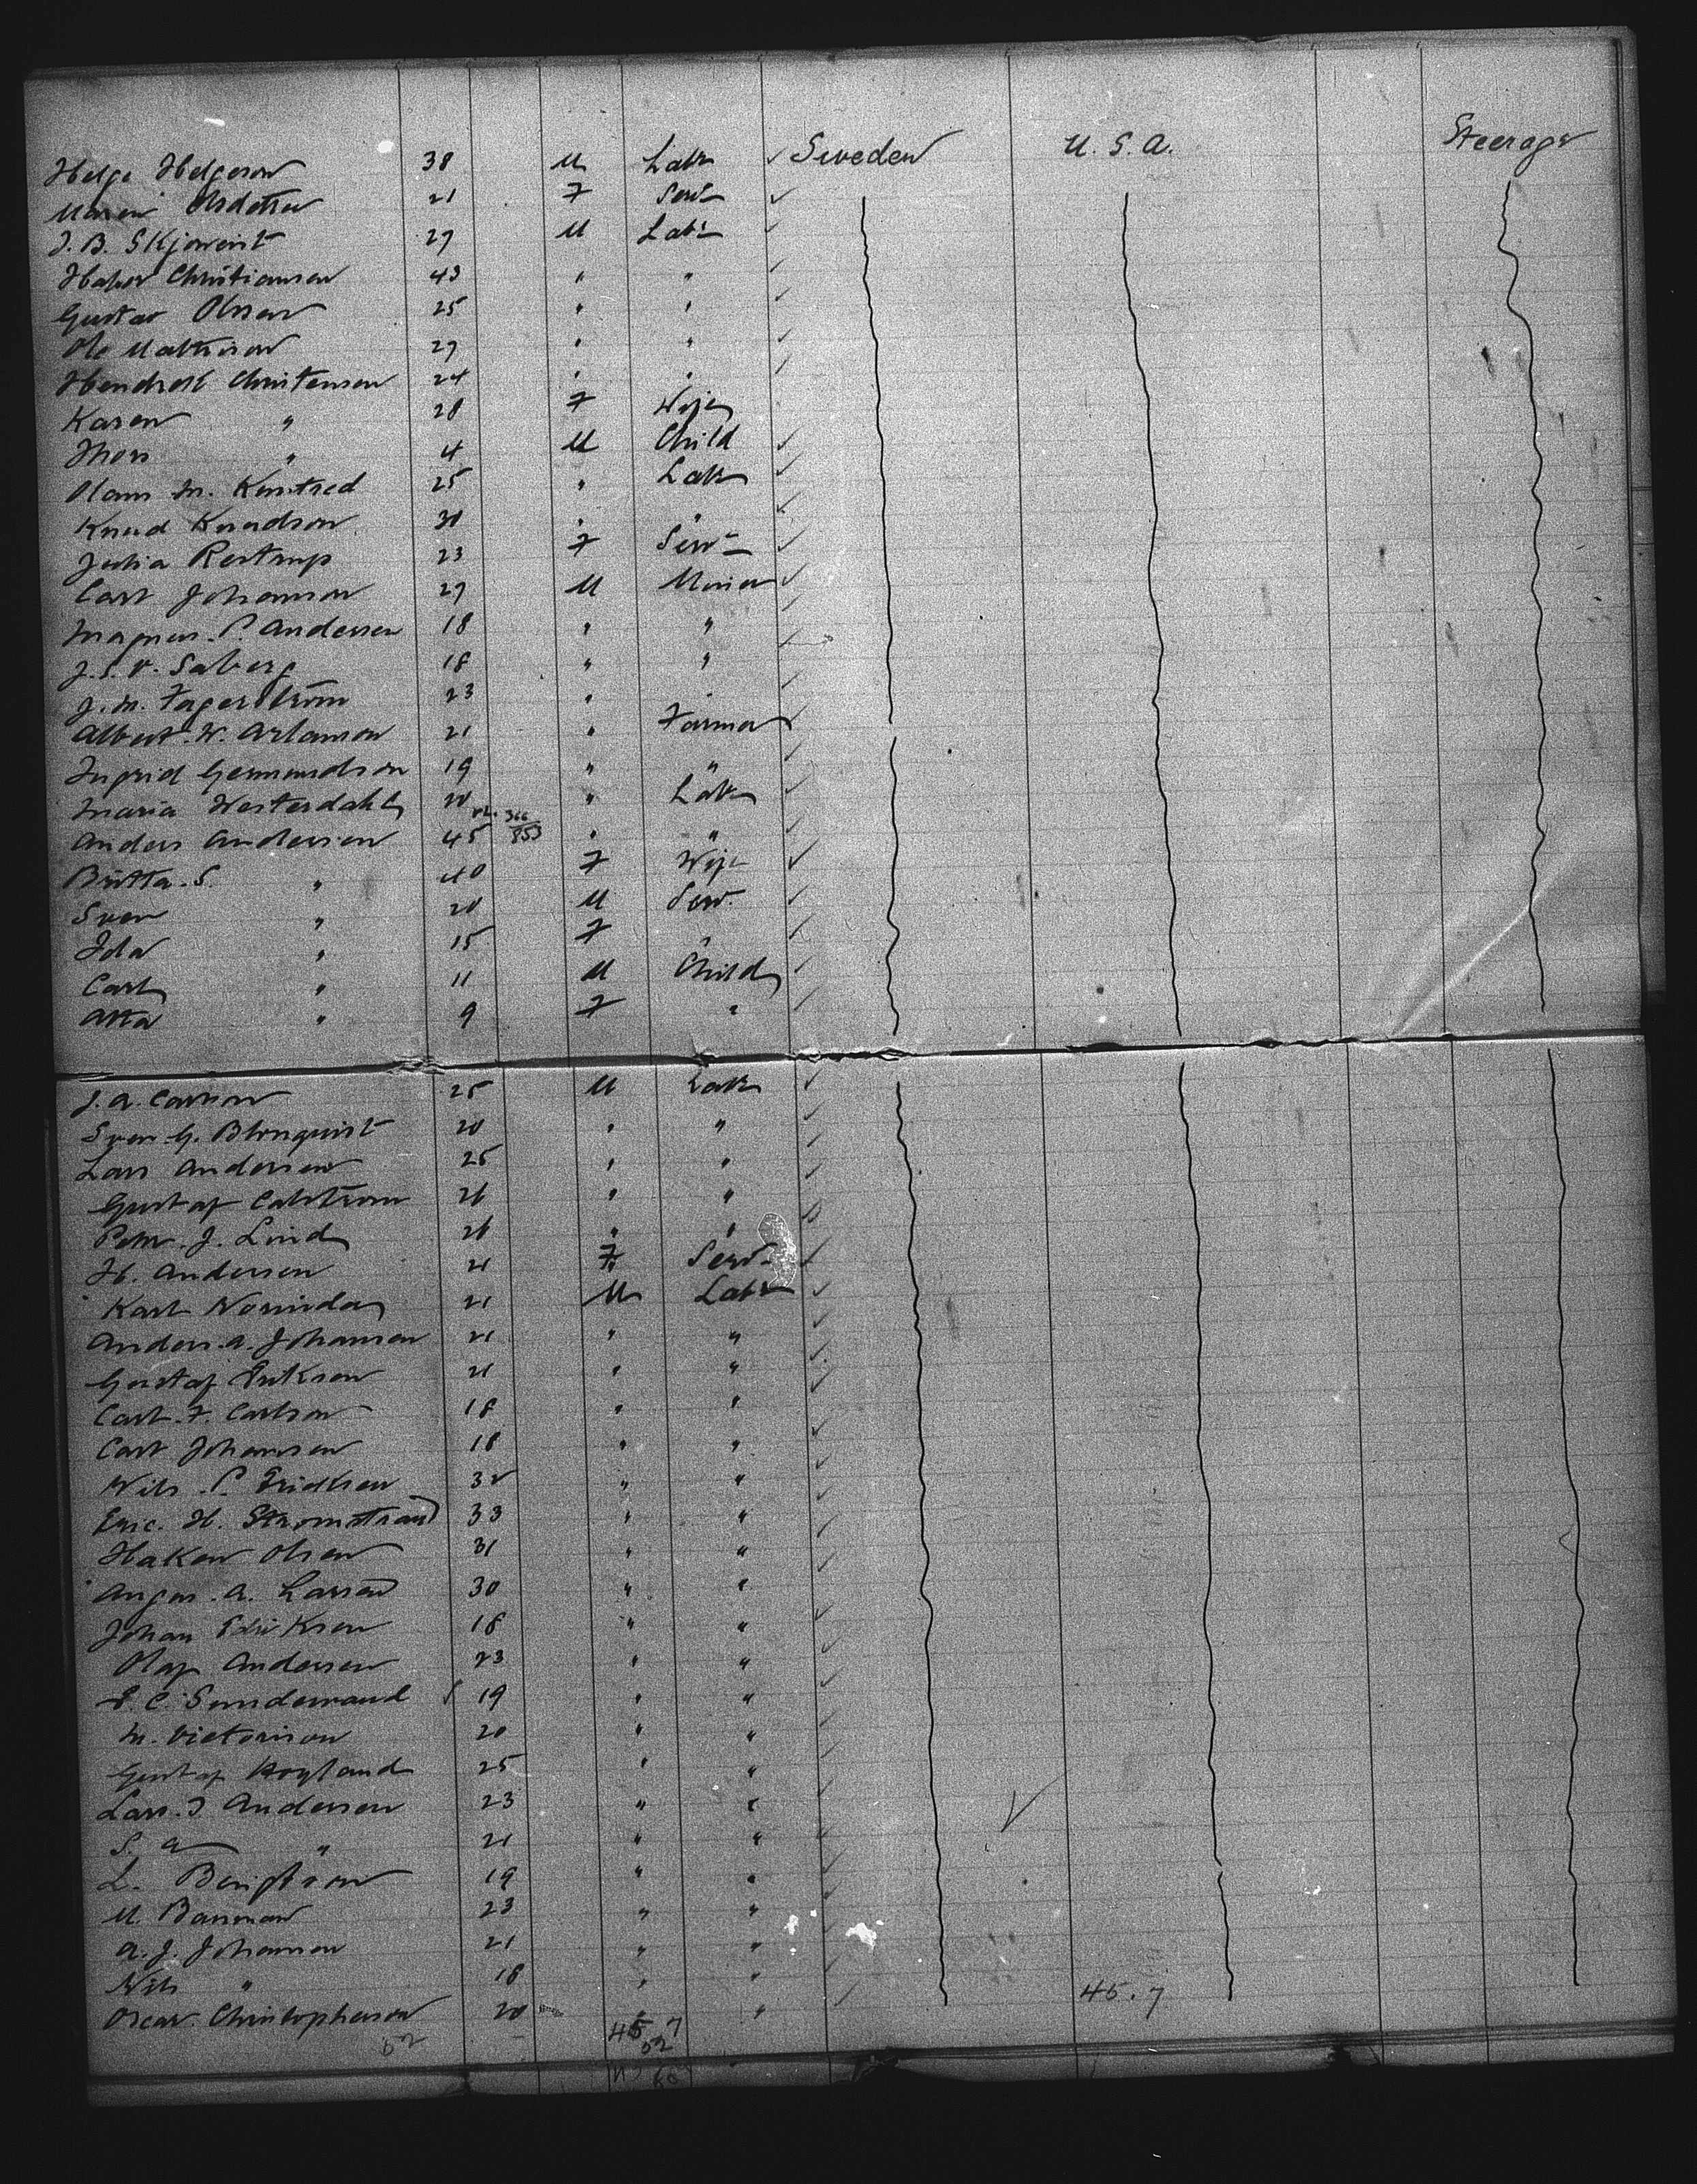 Helge Helgeson 38 M Labr Sweden U. S. A. Steerage
21 F Servt
J. B. Skjoveint 27 M Labr
Christiansen 43 " "
Gustav Olssen 25 " "
Ole Mathison 27 " "
Christensen 24 " "
Karen " 28 F Wife
Thos " 4 M Child
Olam M. 25 " Labr
Knud Knudson 30 " "
Julia Restrup 23 F Servt
Carl Johanson 27 M Miner
Magnus P. Andersen 18 " "
J. S. V. Saberg 18 " "
J. M. Fagerström 23 " "
Albert W. Arlanson 21 " Farmer
Ingrid Germundson 19 " "
Maria Westerdahl 20 " Labr
Anders Andersen 45 366 853 " "
Britta S. " 40 F Wife
Sven " 20 M Serv.
Ida " 15 F "
Carl " 11 M Child
" 9 F "
J. A. Carlson 25 M Labr
Sven G. Blomquist 20 " "
Lars Andersen 25 " "
Gustaf 26 " "
Peter J. Lind 26 " "
H. Andersen 21 F Servt
Karl 21 M Labr
Anders A. Johansen 21 " "
Gustaf Erikson 21 " "
Carl F. Carlson 18 " "
Carl Johansen 18 " "
Nils P. Erickson 32 " "
Eric H. Stromstrand 33 " "
Haken Olsen 31 " "
A. Larsen 30 " "
Johan Eriksen 18 " "
Olaf Andersen 23 " "
E. C. 19 " "
M. Victorison 20 " "
Gustaf Hogland 25 " "
Lars J. Andersen 23 " "
S. A " 21 " "
L. Bengtson 19 " "
M. 23 " "
A. J. Johanson 21 " "
Nils " 18 " "
Oscar Christopherson 20 " "
45.7
52 45 7
52